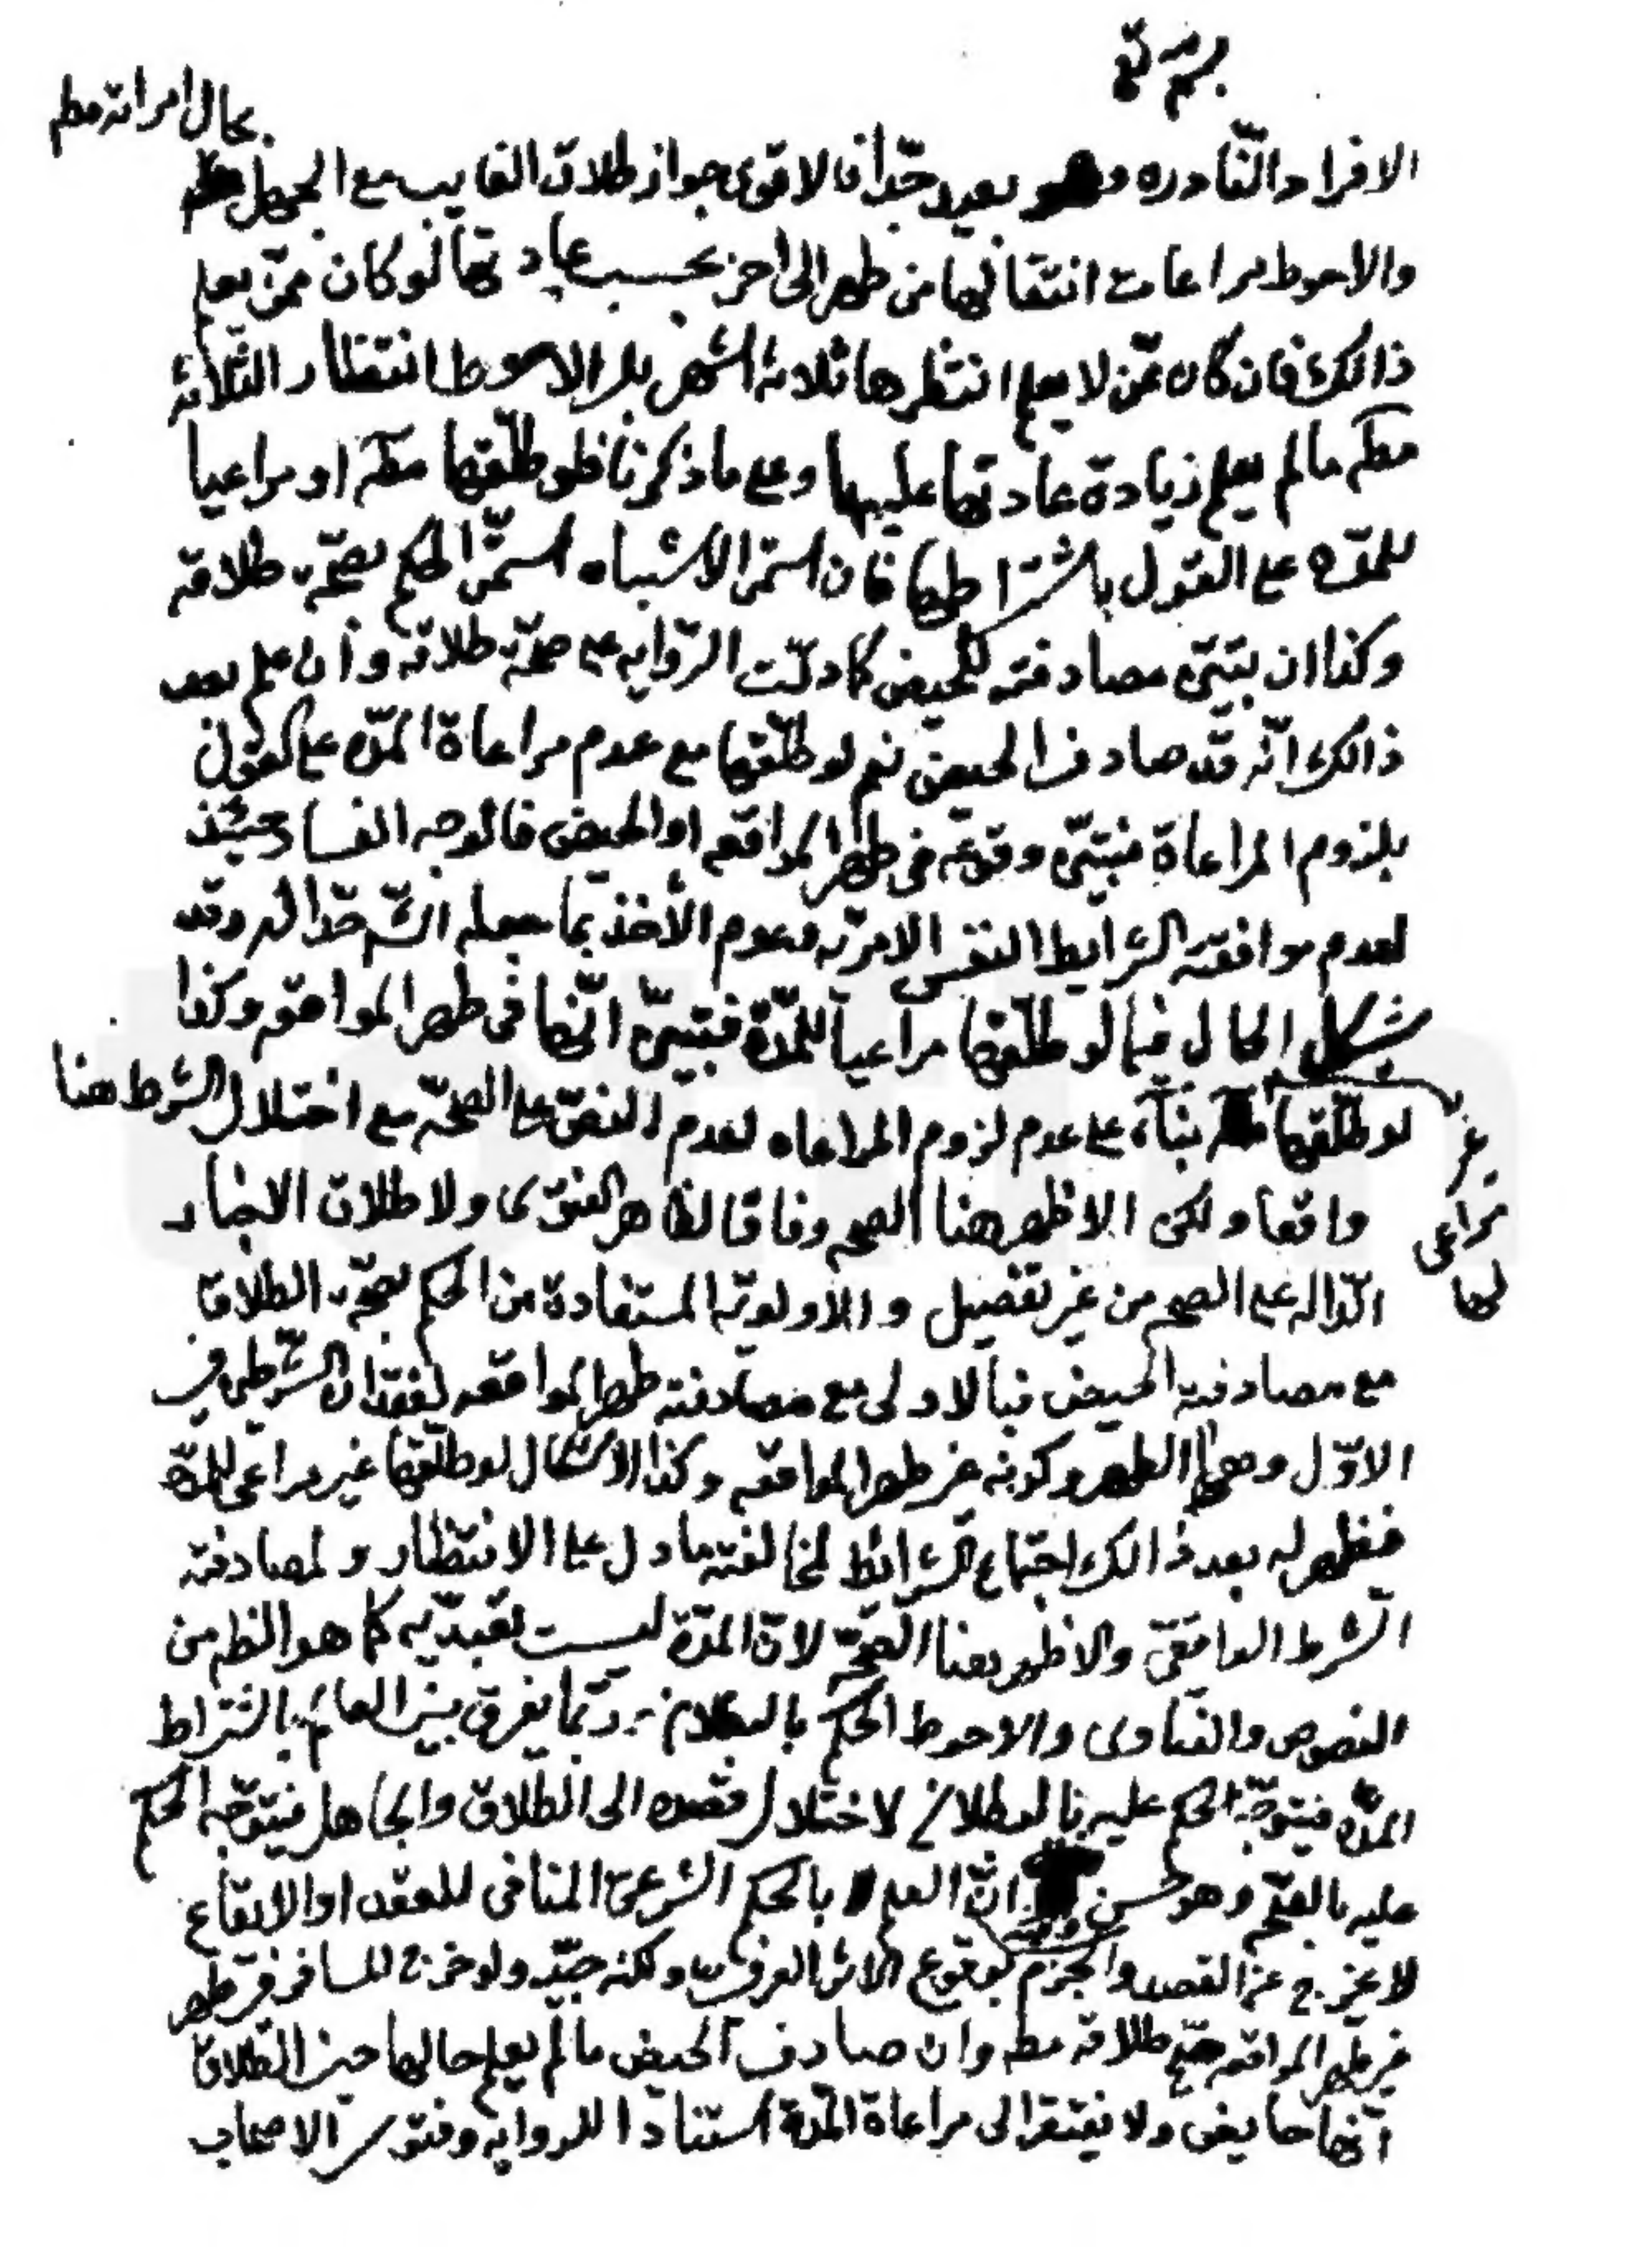 بسمه تع
بحال امراته مطم
الافراد النادره وهو بعيد جدّا فالاقوى جواز طلاق الغايب مع الجهل
والاحوط مراعات انتقالها من طهر الى اخر بحسب عادتها لو كان ممّن يعلم
ذالك فان كان ممّن لا يعلم انتظرها ثلاثة اشهر بل الاحوط انتظار الثلاثة
مطم ما لم يعلم زيادة عادتها عليها وعلى ما ذكرنا فلو طلّقها مطم او مراعيا
للمدّه على القول باشتراطها فان استمر الاشتباه استمرّ الحكم بصحّة طلاقه
وكذا ان تبيّن مصادفته للحيض كما دلّت الرّوايه على صحّة طلاقه وان علم بعد
ذالك انّه قد صادف الحيض نعم لو طلّقها مع عدم مراعاة المدّه على القول
بلزوم المراعاة فتبيّن وقوعه في طهر المواقعه او الحيض فالوجه الفساد حينئذ
لعدم موافقته الشرايط النفس الامريّه وعدم الأخذ بما جعله الشّم حدّا له وقد
يشكل الحال فيما لو طلّقها مراعياً للمدّة فتبيّن انّها في طهر المواقعه وكذا
لو طلّقها بناءً على عدم لزوم المراعاه لعدم النصّ على الصحّه مع اختلال الشرط هنا
غير
مراعى
لها
واقعا ولكن الاظهر هنا الصحه وفاقا لظاهر الفتوى ولاطلاق الاخبار
الدّاله على الصحه من غير تفصيل والاولويّه المستفادة من الحكم بصحّة الطلاق
مع مصادفة الحيض فبالاولى مع مصادفته طهر المواقعه لفقدان الشّرطين في
الاوّل وهما الطهر وكونه غير طهر المواقعه وكذا الاشكال لو طلّقها غير مراعى للمدّة
فظهر له بعد ذالك اجتماع الشرائط لمخالفته ما دل على الانتظار ولمصادفته
الشرط الواقعيّ والاظهر هنا الصحّه لانّ المدّة ليست تعبديّه كما هو الظم من
النصوص والفتاوى والاحوط الحكم بالبطلان وربّما يفرق بين العالم باشتراط
المدّه فيتوجّه الحكم عليه بالبطلان لاختلال قصده الى الطّلاق والجاهل فيتوجّه الحكم
عليه بالصحّه وهو حسن وفيه انّ العلم بالحكم الشرعيّ المنافي للعقد او الايقاع
لا يخرج عن القصد والجزم بوقوع الاثر العرفي ولكنه جيّد ولو خرج للسافر في طهر
غير طهر المواقعه صحّ طلاقه مطم وان صادف الحيض ما لم يعلم حالها حين الطّلاق
انها حايض ولا يفتقر الى مراعاة المدّة استنادا للروايه وفتوى الاصحاب